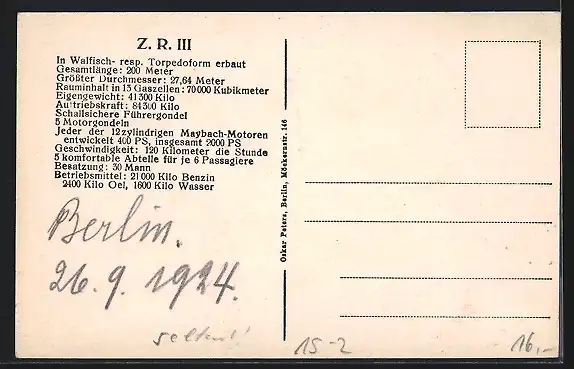 Z. R. III
In Walfisch- resp. Torpedoform erbaut
Gesamtlänge: 200 Meter
Größter Durchmesser: 27,64 Meter
Rauminhalt in 13 Gaszellen: 70000 Kubikmeter
Eigengewicht: 41300 Kilo
Auftriebskraft: 84300 Kilo
Schallsichere Führergondel
5 Motorgondeln
Jeder der 12zylindrigen Maybach-Motoren
entwickelt 400 PS, insgesamt 2000 PS
Geschwindigkeit: 120 Kilometer die Stunde
5 komfortable Abteile für je 6 Passagiere
Besatzung: 30 Mann
Betriebsmittel: 21000 Kilo Benzin
2400 Kilo Oel, 1600 Kilo Wasser
Berlin.
26.9.1924.
selten!
Oskar Peters, Berlin, Möckernstr. 146
15-2
16,-